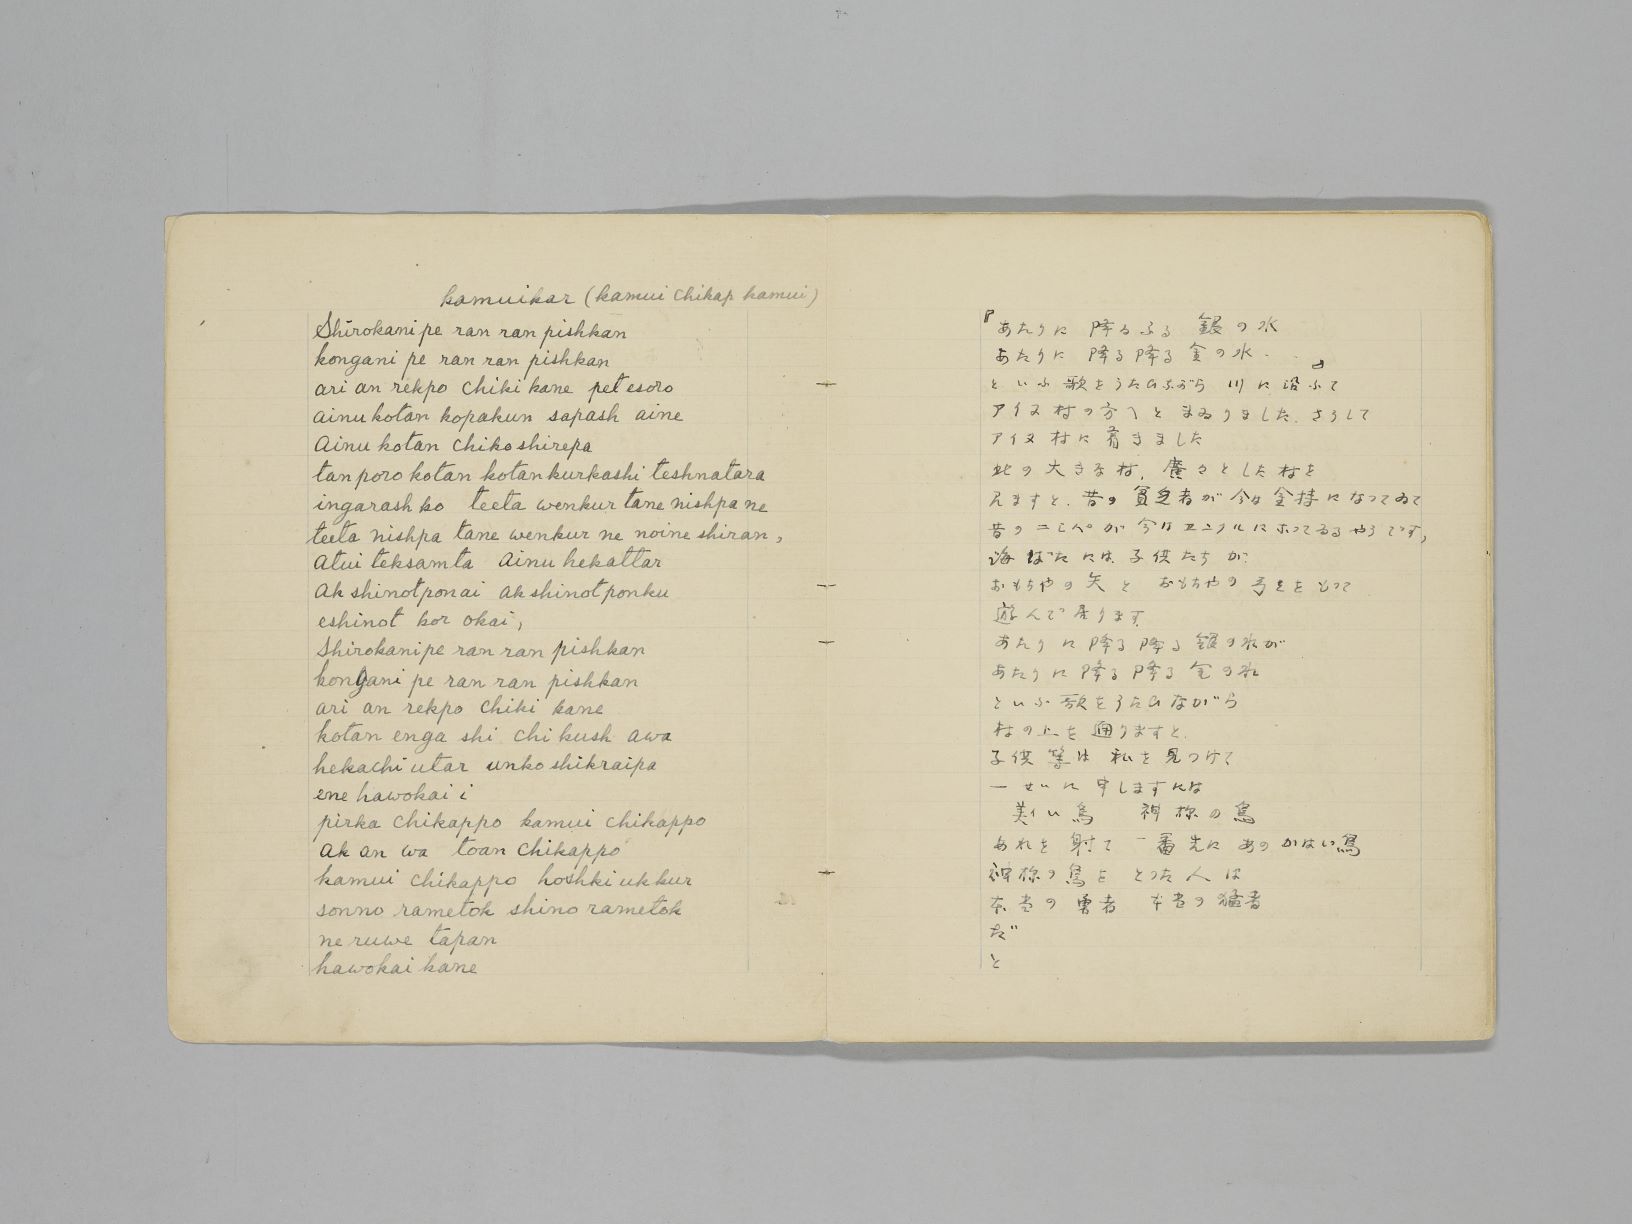 kamuikar (kamui chikap kamui)
Shirokanipe ran ran pishkan
kongani pe ran ran pishkan
ari an rekpo chiki kane pet esoro
ainu kotan kopakun sapash aine
ainu kotan chikoshirepa
tan poro kotan kotankurkashi teshnatara
ingarash ko teeta wenkur tane nishpa ne
teeta nishpa tane wenkur ne noine shiran,
atui teksamta ainu hekattar
ak shinotponai ak shinotponku
eshinot kor okai,
Shirokanipe ran ran pishkan
kongani pe ran ran pishkan
ari an rekpo chiki kane
kotan enga shi chi kush awa
hekachi utar unkoshikraipa
ene hawokai i
pirka chikappo kamui chikappo
ak an wa toan chikappo
kamui chikappo hoshki ukkur
sonno rametok shino rametok
ne ruwe tapan
hawokai kane
『あたりに 降るふる 銀の水
あたりに 降る降る 金の水.』
といふ歌をうたひながら 川に沿ふて
アイヌ村の方へとまゐりました. さうして
アイヌ村に着きました
此の大きな村, 廣々とした村を
見ますと. 昔の貧乏者が今は金持になってゐて
昔のニシパが今はウェンクルになってゐるやうです,
海ばたには 子供たちが
おもちやの矢と おもちやの弓とをもって
遊んで居ります.
あたりに降る降る銀の水が
あたりに降る降る金の水
といふ歌をうたひながら
村の上を通りますと.
子供等は 私を見つけて
一せいに申しますには
美い鳥 神様の鳥
あれを射て 一番先にあのかはい鳥
神様の鳥を とった人は
本当の勇者 本当の猛者
だ
と